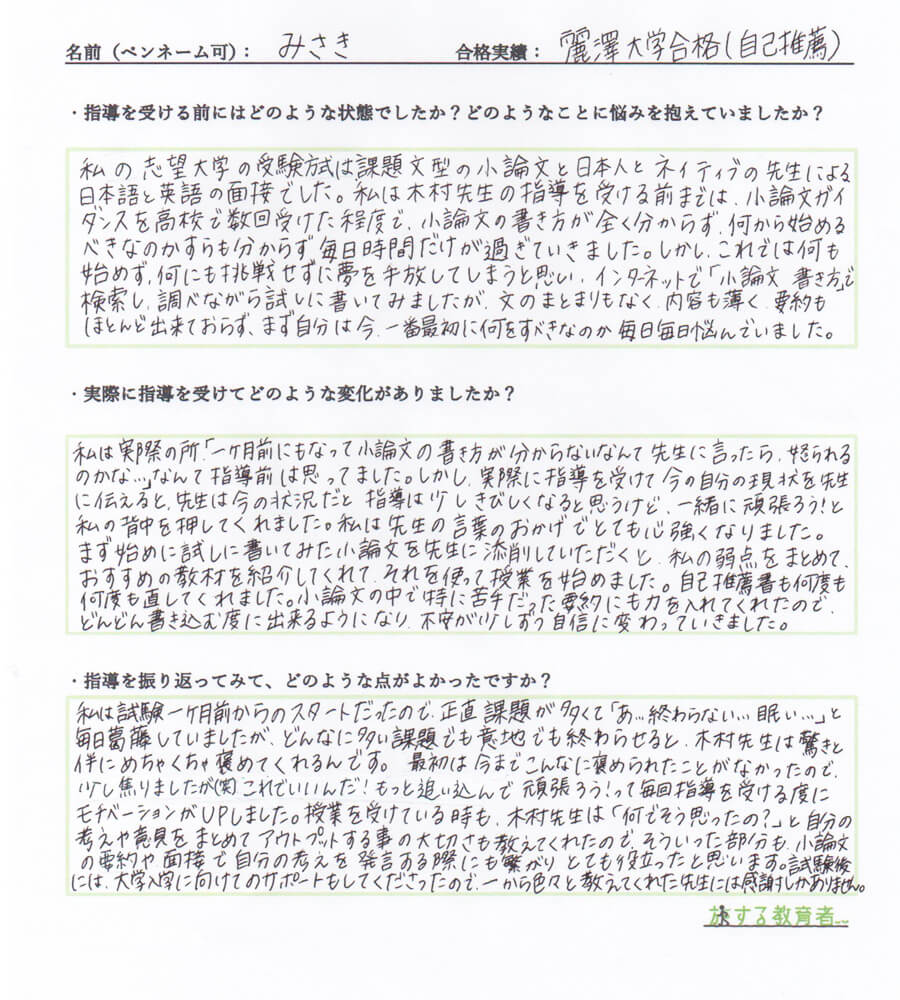 名前（ペンネーム可）： みさき 合格実績： 麗澤大学合格(自己推薦)
・指導を受ける前にはどのような状態でしたか？どのようなことに悩みを抱えていましたか？
私の志望大学の受験方式は課題文型の小論文と日本人とネイティブの先生による
日本語と英語の面接でした。私は木村先生の指導を受ける前までは、小論文ガイ
ダンスを高校で数回受けた程度で、小論文の書き方が全く分からず、何から始める
べきなのかすらも分からず毎日時間だけが過ぎていきました。しかし、これでは何も
始めず、何にも挑戦せずに夢を手放してしまうと思い、インターネットで「小論文 書き方」で
検索し、調べながら試しに書いてみましたが、文のまとまりもなく、内容も薄く、要約も
ほとんど出来ておらず、まず自分は今、一番最初に何をすべきなのか毎日毎日悩んでいました。
・実際に指導を受けてどのような変化がありましたか？
私は実際の所、「一ヶ月前にもなって小論文の書き方が分からないなんて先生に言ったら、怒られる
のかな…」なんて指導前は思ってました。しかし、実際に指導を受けて今の自分の現状を先生
に伝えると、先生は今の状況だと指導は少しきびしくなると思うけど、一緒に頑張ろう！と
私の背中を押してくれました。私は先生の言葉のおかげでとても心強くなりました。
まず始めに試しに書いてみた小論文を先生に添削していただくと、私の弱点をまとめて、
おすすめの教材を紹介してくれて、それを使って授業を始めました。自己推薦書も何度も
何度も直してくれました。小論文の中で特に苦手だった要約にも力を入れてくれたので、
どんどん書き込む度に出来るようになり、不安が少しずつ自信に変わっていきました。
・指導を振り返ってみて、どのような点がよかったですか？
私は試験一ヶ月前からのスタートだったので、正直課題が多くて「あ…終わらない…眠い…」と
毎日葛藤していましたが、どんなに多い課題でも意地でも終わらせると、木村先生は驚きと
伴にめちゃくちゃ褒めてくれるんです。 最初は今までこんなに褒められたことがなかったので、
少し焦りましたが(笑)これでいいんだ！もっと追い込んで頑張ろう！って毎回指導を受ける度に
モチベーションがUPしました。授業を受けている時も、木村先生は「何でそう思ったの？」と自分の
考えや意見をまとめてアウトプットする事の大切さも教えてくれたので、そういった部分も、小論文
の要約や面接で自分の考えを発言する際にも繋がりとても役立ったと思います。試験後
には、大学入学に向けてのサポートもしてくださったので、一から色々と教えてくれた先生には感謝しかありません。
旅する教育者